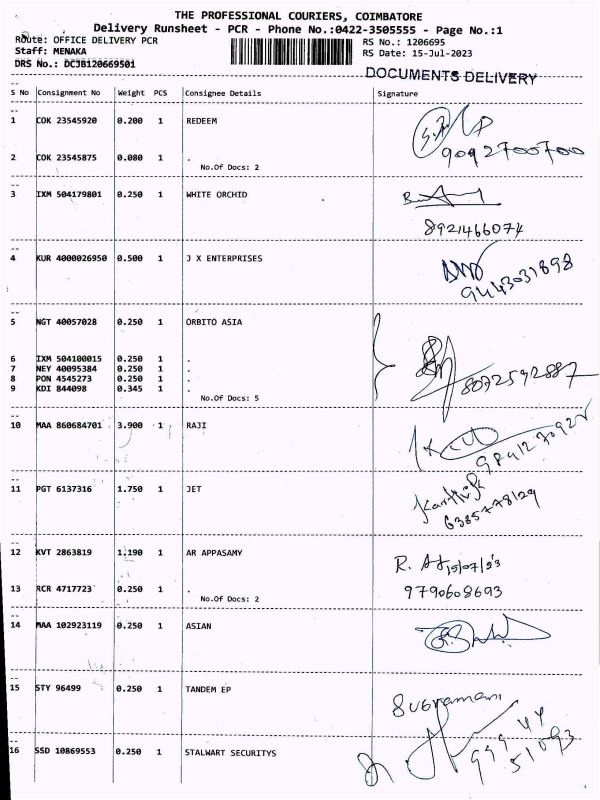 THE PROFESSIONAL COURIERS, COIMBATORE
Delivery Runsheet - PCR - Phone No.:0422-3505555 - Page No.:1
Route: OFFICE DELIVERY PCR
RS No.: 1206695
Staff: MENAKA
RS Date: 15-Jul-2023
DRS No.: DCJB120669501
DOCUMENTS DELIVERY
S No Consignment No Weight PCS Consignee Details Signature
1 COK 23545920 0.200 1 REDEEM
2 COK 23545875 0.080 1 .
9092700700
No.Of Docs: 2
3 IXM 504179801 0.250 1 WHITE ORCHID
8921466074
4 KUR 4000026950 0.500 1 J X ENTERPRISES
9443031898
5 NGT 40057028 0.250 1 ORBITO ASIA
6 IXM 504100015 0.250 1 .
7 NEY 40095384 0.250 1 .
8 PON 4545273 0.250 1 .
9 KDI 844098 0.345 1 .
8072592887
No.Of Docs: 5
10 MAA 860684701 3.900 1 RAJI
11 PGT 6137316 1.750 1 JET
Karthik
6385778129
12 KVT 2863819 1.190 1 AR APPASAMY
13 RCR 4717723 0.250 1 .
9790608693
No.Of Docs: 2
14 MAA 102923119 0.250 1 ASIAN
15 STY 96499 0.250 1 TANDEM EP
Subramani
16 SSD 10869553 0.250 1 STALWART SECURITYS
99944
51093